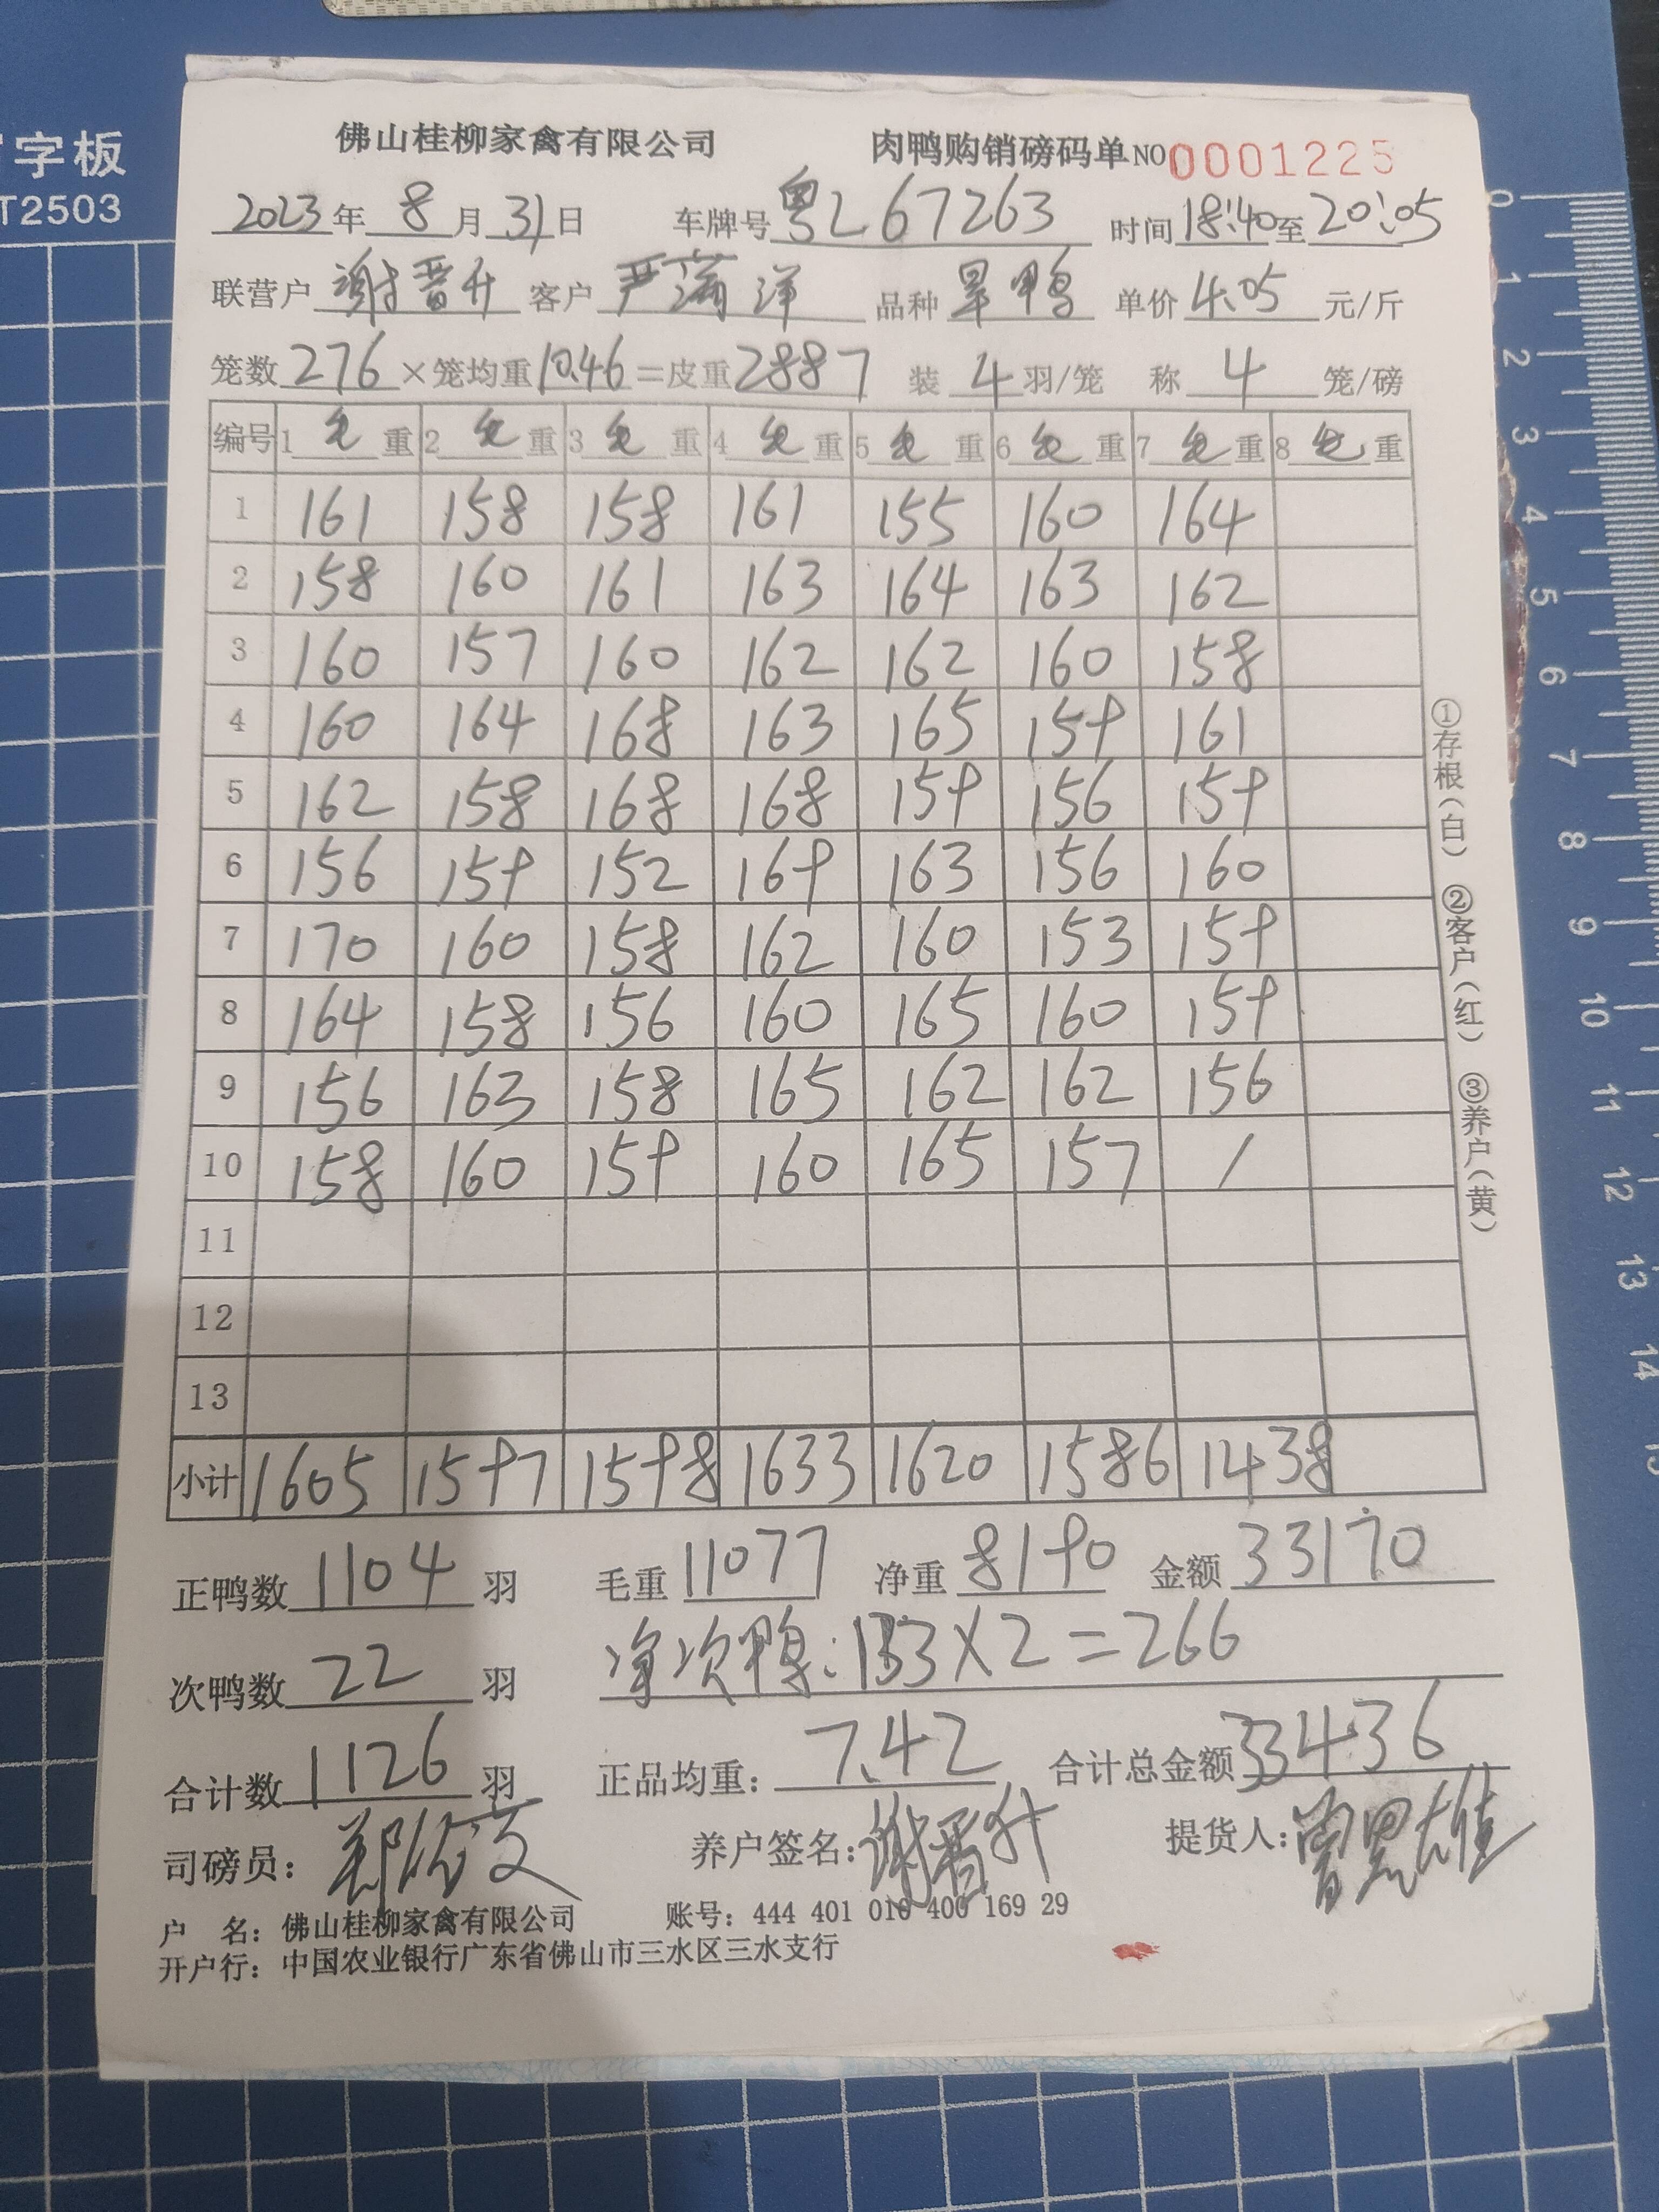 字板
T2503
佛山桂柳家禽有限公司 肉鸭购销磅码单NO 0001225
2023年 8 月 31 日 车牌号 粤L67263 时间 18:40 至 20:05
联营户 谢晋升 客户 严满洋 品种 旱鸭 单价 4.05 元/斤
笼数 276 ×笼均重 10.46 =皮重 2887 装 4 羽/笼 称 4 笼/磅
编号 1 毛 重 2 毛 重 3 毛 重 4 毛 重 5 毛 重 6 毛 重 7 毛 重 8 毛 重
1 161 158 158 161 155 160 164
2 158 160 161 163 164 163 162
3 160 157 160 162 162 160 158
4 160 164 168 163 165 159 161
5 162 158 168 168 159 156 159
6 156 159 152 169 163 156 160
7 170 160 158 162 160 153 159
8 164 158 156 160 165 160 159
9 156 163 158 165 162 162 156
10 158 160 159 160 165 157 /
11
12
13
小计 1605 1597 1598 1633 1620 1586 1438
正鸭数 1104 羽 毛重 11077 净重 8190 金额 33170
次鸭数 22 羽 净次鸭:133×2=266
合计数 1126 羽 正品均重: 7.42 合计总金额 33436
司磅员: 养户签名: 谢晋升 提货人:
户 名: 佛山桂柳家禽有限公司 账号: 444 401 010 400 169 29
开户行: 中国农业银行广东省佛山市三水区三水支行
①存根(白) ②客户(红) ③养户(黄)
0
1
2
3
4
5
6
7
8
9
10
11
12
13
14